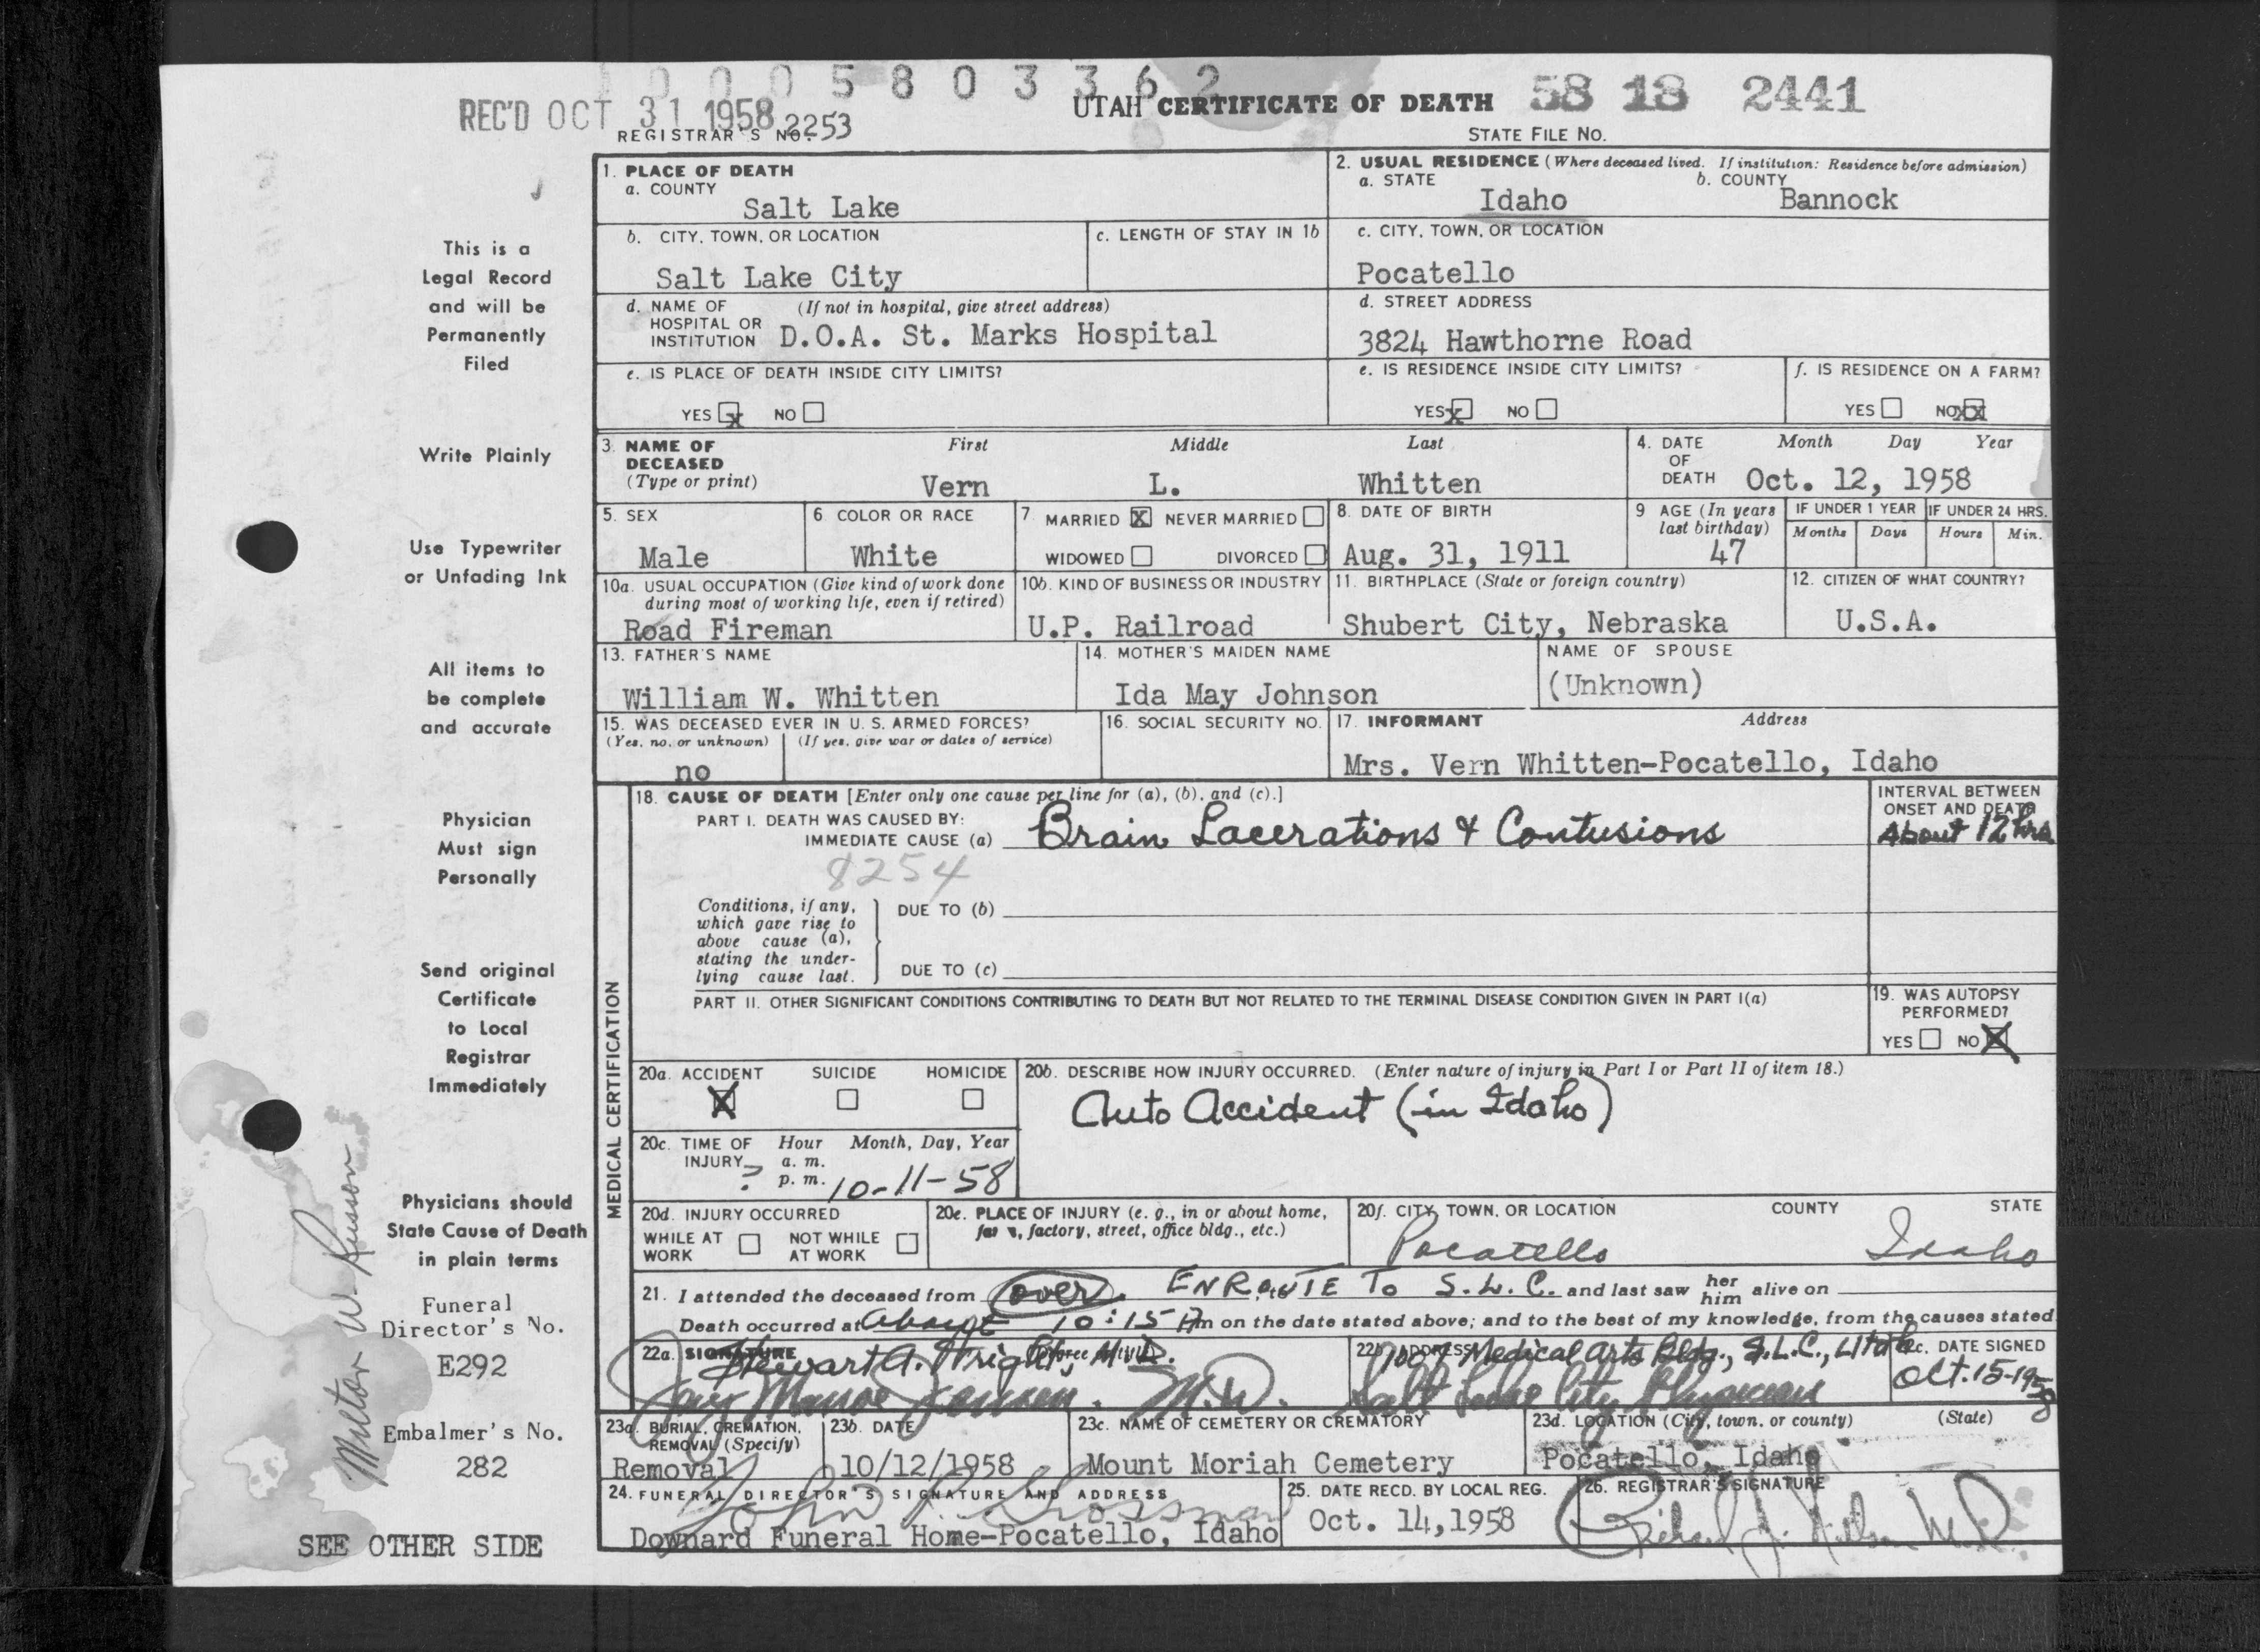 0005803362
REC'D OCT 31 1958
REGISTRAR'S NO. 2253
UTAH CERTIFICATE OF DEATH
58 18 2441
STATE FILE NO.
This is a
Legal Record
and will be
Permanently
Filed
Write Plainly
Use Typewriter
or Unfading Ink
All items to
be complete
and accurate
Physician
Must sign
Personally
Send original
Certificate
to Local
Registrar
Immediately
Physicians should
State Cause of Death
in plain terms
Funeral
Director's No.
E292
Embalmer's No.
282
SEE OTHER SIDE
Milton W Russon
1. PLACE OF DEATH
a. COUNTY
Salt Lake
2. USUAL RESIDENCE (Where deceased lived. If institution: Residence before admission)
a. STATE b. COUNTY
Idaho Bannock
b. CITY, TOWN, OR LOCATION
Salt Lake City
c. LENGTH OF STAY IN 1b
c. CITY, TOWN, OR LOCATION
Pocatello
d. NAME OF (If not in hospital, give street address)
HOSPITAL OR
INSTITUTION D.O.A. St. Marks Hospital
d. STREET ADDRESS
3824 Hawthorne Road
e. IS PLACE OF DEATH INSIDE CITY LIMITS?
YES x NO
e. IS RESIDENCE INSIDE CITY LIMITS?
YES x NO
f. IS RESIDENCE ON A FARM?
YES NO xx
3. NAME OF DECEASED (Type or print)
First Middle Last
Vern L. Whitten
4. DATE OF DEATH
Month Day Year
Oct. 12, 1958
5. SEX
Male
6 COLOR OR RACE
White
7 MARRIED X NEVER MARRIED
WIDOWED DIVORCED
8. DATE OF BIRTH
Aug. 31, 1911
9 AGE (In years
last birthday)
47
IF UNDER 1 YEAR
Months Days
IF UNDER 24 HRS.
Hours Min.
10a. USUAL OCCUPATION (Give kind of work done
during most of working life, even if retired)
Road Fireman
10b. KIND OF BUSINESS OR INDUSTRY
U.P. Railroad
11. BIRTHPLACE (State or foreign country)
Shubert City, Nebraska
12. CITIZEN OF WHAT COUNTRY?
U.S.A.
13. FATHER'S NAME
William W. Whitten
14. MOTHER'S MAIDEN NAME
Ida May Johnson
NAME OF SPOUSE
(Unknown)
15. WAS DECEASED EVER IN U. S. ARMED FORCES?
(Yes, no, or unknown) (If yes, give war or dates of service)
no
16. SOCIAL SECURITY NO.
17. INFORMANT Address
Mrs. Vern Whitten-Pocatello, Idaho
MEDICAL CERTIFICATION
18. CAUSE OF DEATH [Enter only one cause per line for (a), (b), and (c).]
PART I. DEATH WAS CAUSED BY:
IMMEDIATE CAUSE (a) Brain Lacerations & Contusions
8254
INTERVAL BETWEEN
ONSET AND DEATH
About 12 hrs
Conditions, if any,
which gave rise to
above cause (a),
stating the under-
lying cause last.
DUE TO (b)
DUE TO (c)
PART II. OTHER SIGNIFICANT CONDITIONS CONTRIBUTING TO DEATH BUT NOT RELATED TO THE TERMINAL DISEASE CONDITION GIVEN IN PART I(a)
19. WAS AUTOPSY
PERFORMED?
YES NO X
20a. ACCIDENT SUICIDE HOMICIDE
X
20b. DESCRIBE HOW INJURY OCCURRED. (Enter nature of injury in Part I or Part II of item 18.)
Auto Accident (in Idaho)
20c. TIME OF INJURY Hour Month, Day, Year
? a. m.
p. m. 10-11-58
20d. INJURY OCCURRED
WHILE AT WORK NOT WHILE AT WORK
20e. PLACE OF INJURY (e. g., in or about home,
farm, factory, street, office bldg., etc.)
20f. CITY, TOWN, OR LOCATION COUNTY STATE
Pocatello Idaho
21. I attended the deceased from (over). ENROUTE TO S.L.C. and last saw her him alive on
Death occurred at about 10:15 Am on the date stated above; and to the best of my knowledge, from the causes stated
22a. SIGNATURE (Degree or title)
Stewart A. Wright, M.D.
Jay Monroe Jensen. M.D.
22b. ADDRESS
1007 Medical Arts Bldg., S.L.C., Utah
Salt Lake City Physician
22c. DATE SIGNED
Oct. 15-1958
23a. BURIAL, CREMATION,
REMOVAL (Specify)
Removal
23b. DATE
10/12/1958
23c. NAME OF CEMETERY OR CREMATORY
Mount Moriah Cemetery
23d. LOCATION (City, town, or county) (State)
Pocatello, Idaho
24. FUNERAL DIRECTOR'S SIGNATURE AND ADDRESS
Downard Funeral Home-Pocatello, Idaho
25. DATE RECD. BY LOCAL REG.
Oct. 14, 1958
26. REGISTRAR'S SIGNATURE